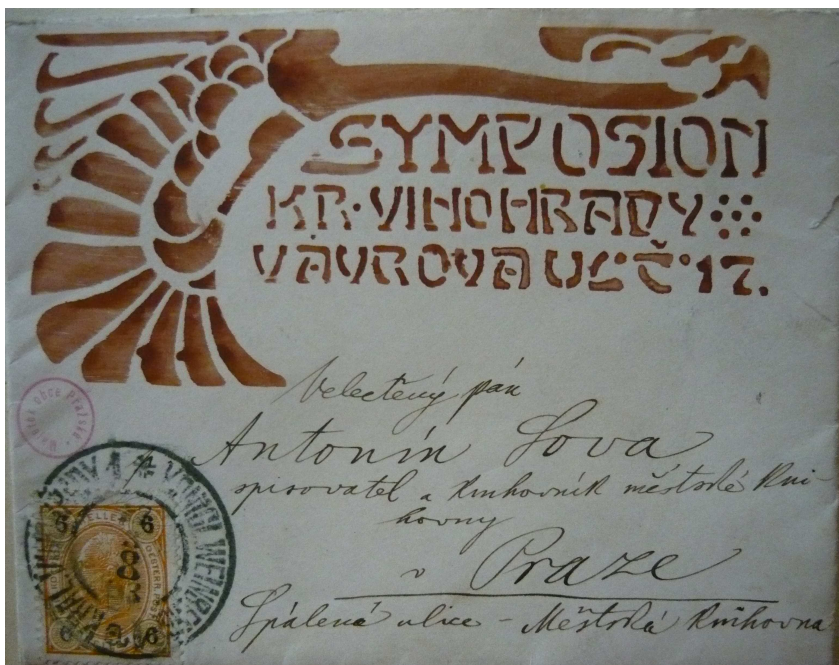 SYMPOSION
KR·VINOHRADY
VÁVROVA UL·Č·17.
Velectěný pán
Antonín Sova
spisovatel a knihovník městské kni-
hovny
v Praze
Spálená ulice - Městská knihovna
6 HELLER 6
6 6
8